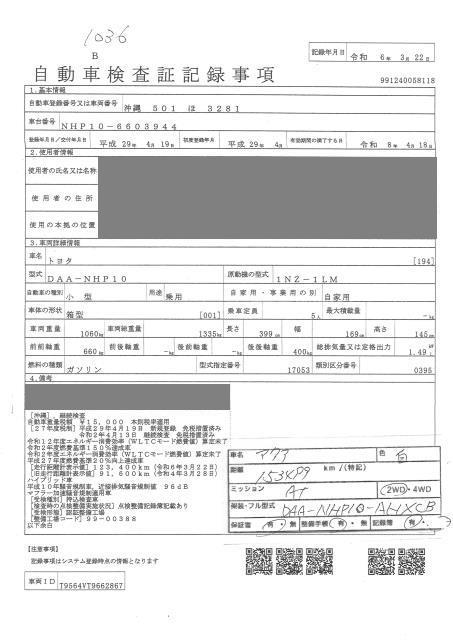 1036
B
記録年月日 令和 6年 3月 22日
自動車検査証記録事項
991240058118
1.基本情報
自動車登録番号又は車両番号 沖縄 501 ほ 3281
車台番号 NHP10-6603944
登録年月日/交付年月日 平成 29年 4月 19日 初度登録年月 平成 29年 4月 有効期間の満了する日 令和 8年 4月 18日
2.使用者情報
使用者の氏名又は名称
使用者の住所
使用の本拠の位置
3.車両詳細情報
車名 トヨタ [194]
型式 DAA-NHP10 原動機の型式 1NZ-1LM
自動車の種別 小型 用途 乗用 自家用・事業用の別 自家用
車体の形状 箱型 [001] 乗車定員 5人 最大積載量 -kg
車両重量 1060kg 車両総重量 1335kg 長さ 399cm 幅 169cm 高さ 145cm
前前軸重 660kg 前後軸重 -kg 後前軸重 -kg 後後軸重 400kg 総排気量又は定格出力 1.49
燃料の種類 ガソリン 型式指定番号 17053 類別区分番号 0395
4.備考
[沖縄],継続検査
自動車重量税額 ¥15,000 本則税率適用
[27年度税制]平成29年4月19日 新規登録 免税措置済み
令和2年4月13日 継続検査 免税措置済み
令和12年度エネルギー消費効率(WLTCモード燃費値)算定未了
令和2年度燃費基準150%達成車
令和2年度エネルギー消費効率(WLTCモード燃費値)算定未了
平成27年度燃費基準20%向上達成車
[走行距離計表示値]123,400km(令和6年3月22日)
[旧走行距離計表示値]91,600km(令和4年3月28日)
ハイブリッド車
平成10年騒音規制車,近接排気騒音規制値 96dB
マフラー加速騒音規制適用車
[受検種別]持込検査車
[検査時の点検整備実施状況]点検整備記録簿記載あり
[受検形態]認証整備工場
[整備工場コード]99-00388
以下余白
車名 アクア 色 白
距離 153499 km /(特記)
ミッション AT 2WD・4WD
類別・フル型式 DAA-NHP10-AHXCB
保証書 有・無 整備手帳 有・無 記録簿 有・
【注意事項】
記録事項はシステム登録時点の情報となります
車両ID T9564VT9662867